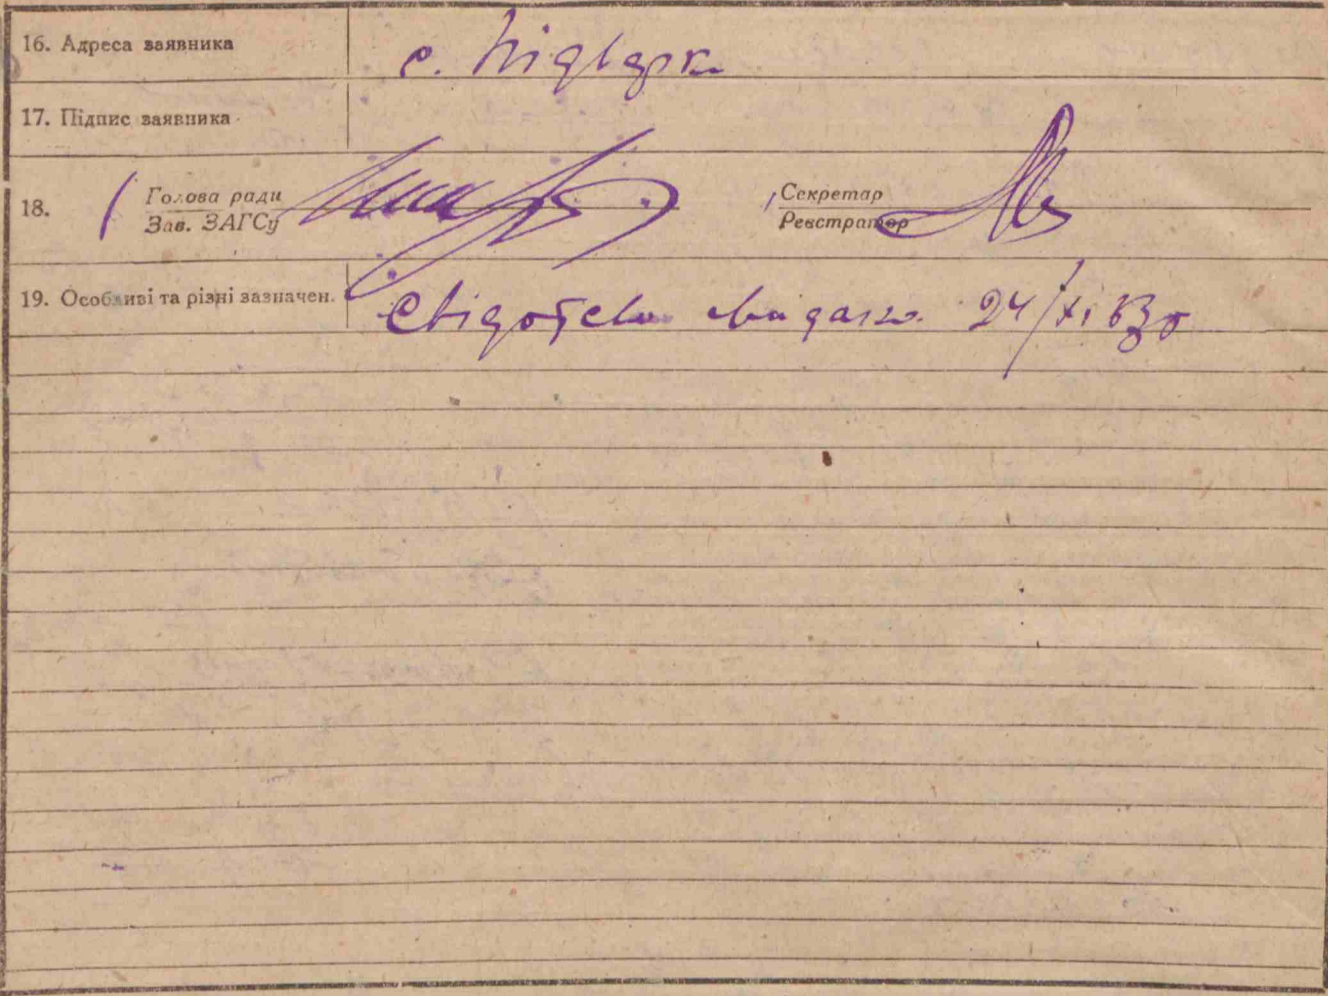 16. Адреса заявника с. Підварк
17. Підпис заявника
18. Голова ради Секретар
Зав. ЗАГСу Реєстратор
19. Особливі та різні зазначен. Свідотство видано 24/XI